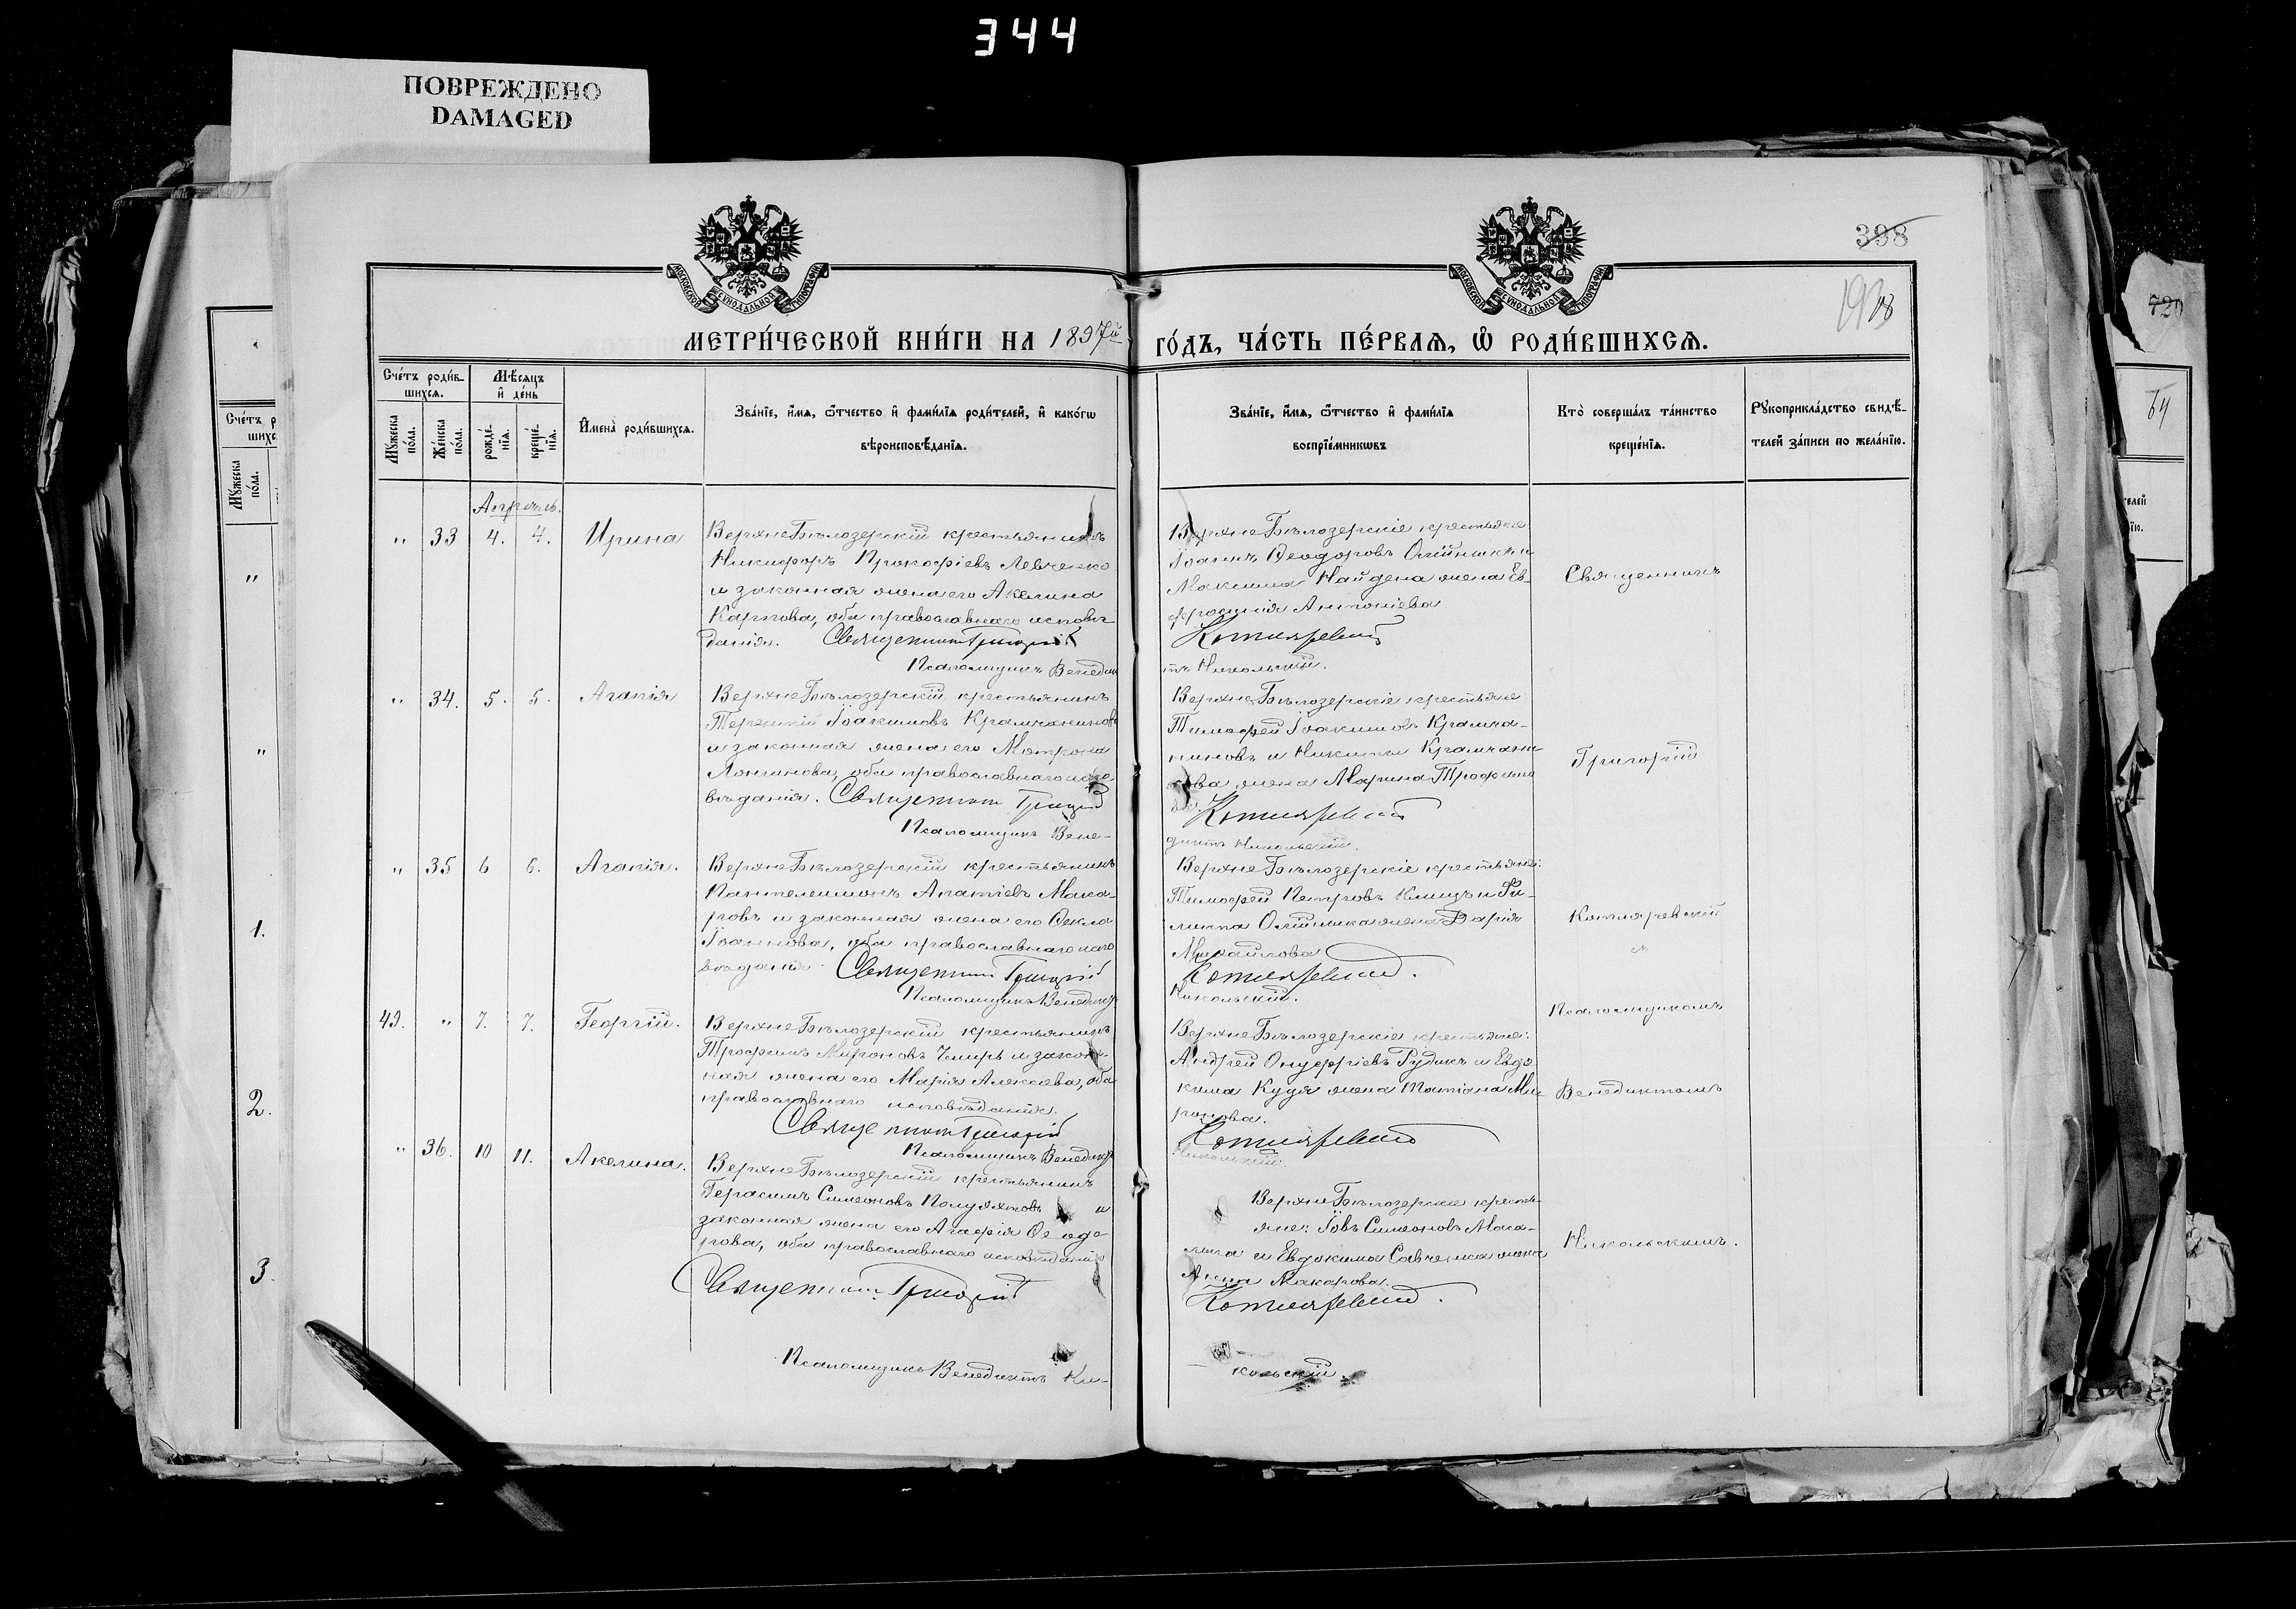 344
ПОВРЕЖДЕНО
DAMAGED
398
МОСКОВСКОЙ СѴНОДАЛЬНОЙ ТИПОГРАФІИ
МОСКОВСКОЙ СѴНОДАЛЬНОЙ ТИПОГРАФІИ
МЕТРИ́ЧЕСКОЙ КНИ́ГИ НА 1897й
ГО́ДЪ, ЧА́СТЬ ПЕ́РВАѦ, Ѡ҆ РОДИ́ВШИХСѦ.
Сче́тъ роди́в-
шихсѧ.
Мѣ́сѧцъ
и҆ де́нь
Мꙋ́жеска
по́ла.
Же́нска
по́ла.
рожде́-
нїѧ.
креще́-
нїѧ.
И҆мена̀ роди́вшихсѧ.
Зва́нїе, и҆́мѧ, ѻ҆́тчество и҆ фами́лїѧ роди́телей, и҆ како́гѡ
вѣроисповѣ́данїѧ.
Зва́нїе, и҆́мѧ, ѻ҆́тчество и҆ фами́лїѧ
воспрїе́мникѡвъ
Кто̀ соверша́лъ та́инство
креще́нїѧ.
Рꙋкоприкла́дство свидѣ́-
телей за́писи по жела́нїю.
Апрѣль.
" 33 4. 4. Ирина
ВерхнеБѣлозерскій крестьянинъ
Никифоръ Прокофіевъ Левченко
и законная жена его Акелина
Карпова, оба православнаго исповѣ-
данія. Священникъ Григорій
Псаломщикъ Венедик
ВерхнеБѣлозерскіе крестьяне
Іоаннъ Ѳеодоровъ Олійникъ и
Максима Найдена жена Ев-
фросинія Антоніева
Котляревскій
тъ Никольскій.
Священникъ
" 34. 5. 5. Агапія
ВерхнеБѣлозерскій крестьянинъ
Терентій Іоакимовъ Крамчаниновъ
и законная жена его Матрона
Логинова, оба православнаго испо-
вѣданія. Священникъ Григорій
Псаломщикъ Вене-
ВерхнеБѣлозерскіе крестьяне
Тимофей Іоакимовъ Крамча-
ниновъ и Никиты Крамчани
нова жена Марина Трофимо
ва. Котляревскій
диктъ Никольскій.
Григорій
" 35 6 6. Агапія.
ВерхнеБѣлозерскій крестьянинъ
Пантелеимонъ Ипатіевъ Мака-
ровъ и законная жена его Ѳекла
Іоаннова, оба православнаго испо
вѣданія Священникъ Григорій
Псаломщикъ Венедиктъ
ВерхнеБѣлозерскіе крестьяне:
Тимофей Петровъ Клицъ и Фи-
липпа Олійника жена Дарія
Михайлова
Котляревскій.
Никольскій.
Котляревскій
съ
Псаломщикомъ
43. " 7. 7. Георгій.
ВерхнеБѣлозерскій крестьянинъ
Трофимъ Мироновъ Чмирь и закон-
ная жена его Марія Алексѣева, оба
православнаго исповѣданія.
Священникъ Григорій
Псаломщикъ Венедиктъ
ВерхнеБѣлозерскіе крестьяне:
Андрей Онуфріевъ Рудикъ и Евдо
кима Куца жена Татіана Ми-
ронова.
Котляревскій
Никольскій.
Венедиктомъ
" 36. 10 11. Акелина.
ВерхнеБѣлозерскій крестьянинъ
Герасимъ Симеоновъ Полуяхтовъ и
законная жена его Агафія Ѳеодо
рова, оба православнаго исповѣданія
Священникъ Григорій
Псаломщикъ Венедиктъ Ни-
ВерхнеБѣлозерскіе кресть-
яне: Іовъ Симеоновъ Маса-
лыга и Евдокима Савченка жена
Анна Макарова.
Котляревскій.
кольскій.
Никольскимъ.
Сче́тъ р
шихс
Мꙋ́жеска
по́ла.
"
"
1.
2.
3.
729
64
телей
їю.